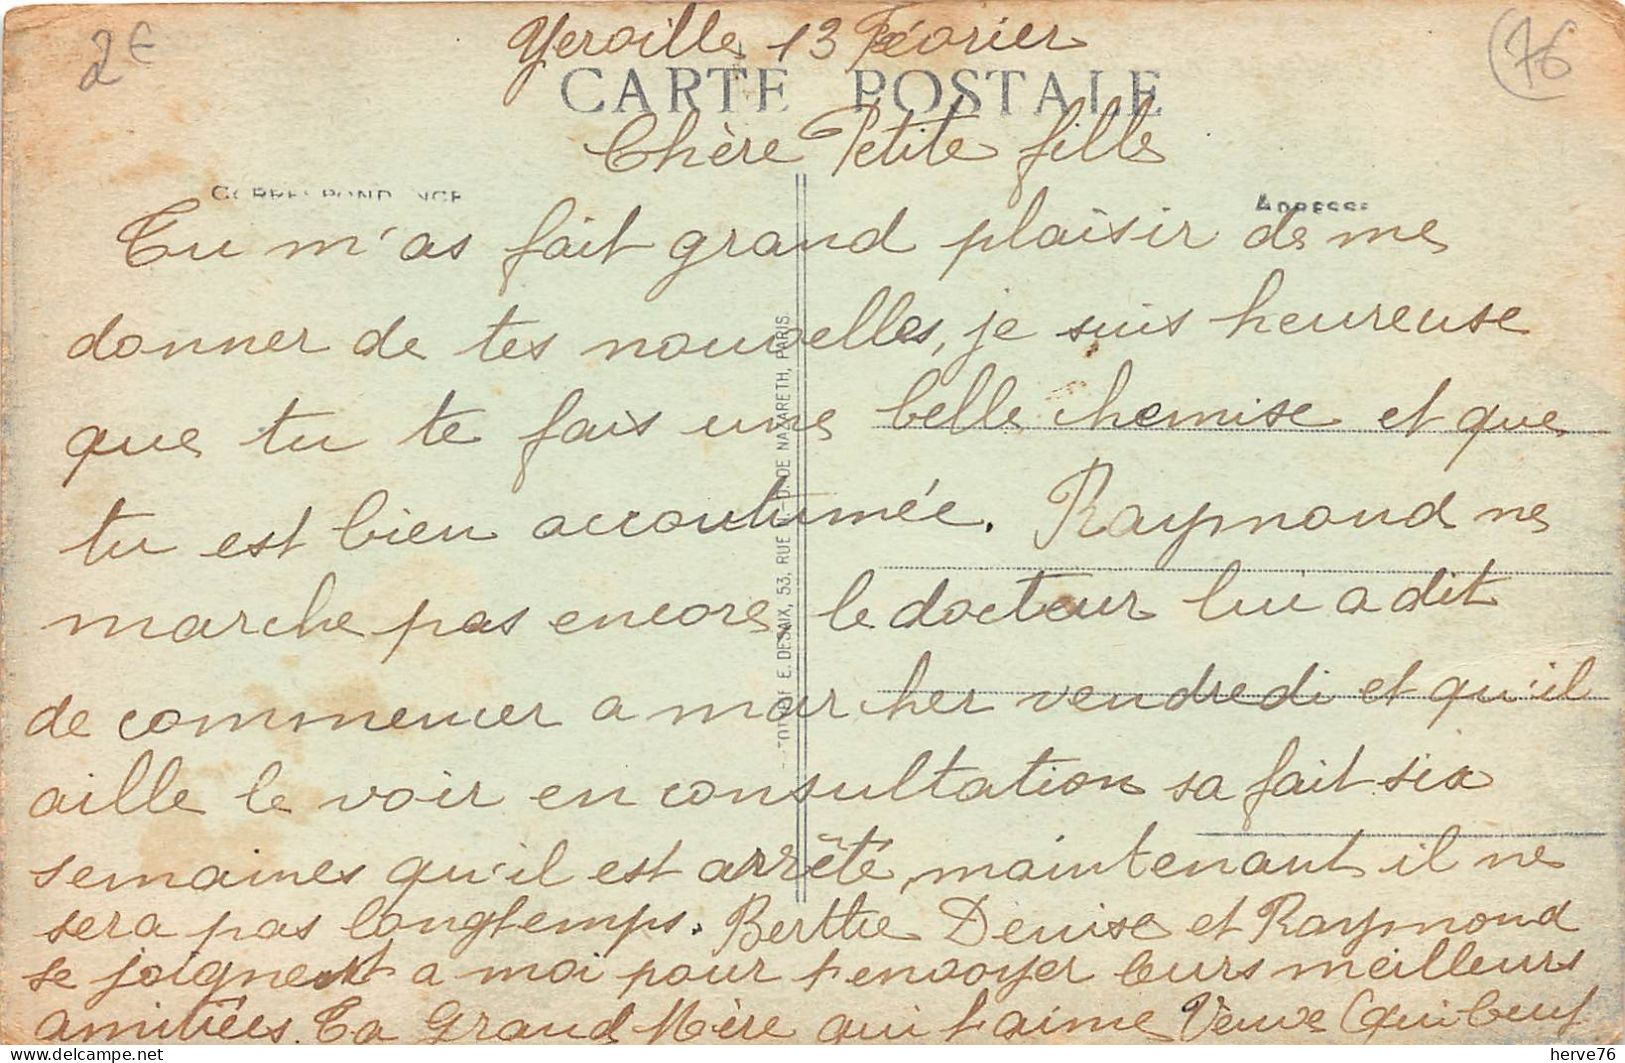 2€
76
Yerville 13 Février
CARTE POSTALE
Chère Petite fille
CORRESPONDANCE
ADRESSE
Tu m'as fait grand plaisir de me
donner de tes nouvelles, je suis heureuse
que tu te fais une belle chemise et que
tu est bien accoutumée. Raymond ne
marche pas encore le docteur lui a dit
de commencer a marcher vendredi et qu'il
aille le voir en consultation sa fait six
semaines qu'il est arrêté, maintenant il ne
sera pas longtemps. Berthe Denise et Raymond
se joignent a moi pour t'envoyer leurs meilleurs
amitiées. Ta Grand Mère qui t'aime Veuve Quibeuf
E. DESAIX, 53, RUE DE NAZARETH, PARIS
herve76